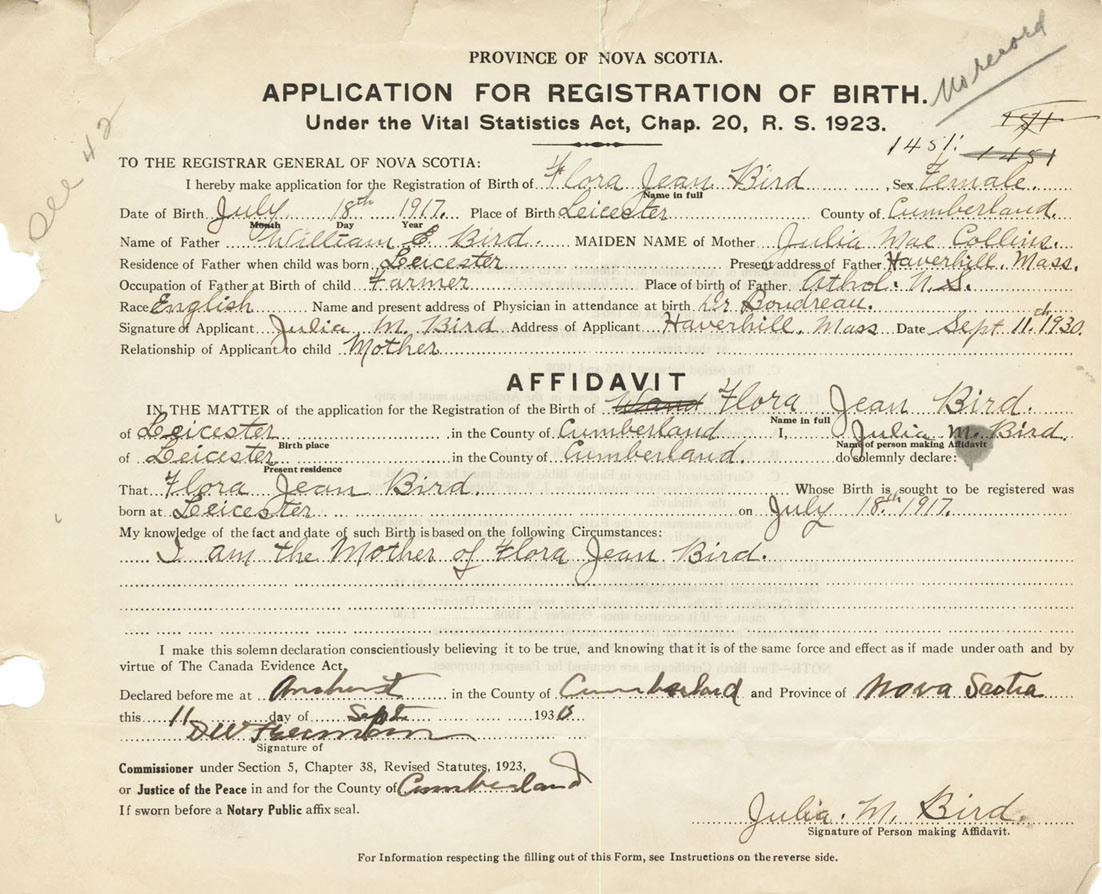 No record
PROVINCE OF NOVA SCOTIA.
APPLICATION FOR REGISTRATION OF BIRTH.
Under the Vital Statistics Act, Chap. 20, R. S. 1923.
1451
1451
TO THE REGISTRAR GENERAL OF NOVA SCOTIA:
I hereby make application for the Registration of Birth of Flora Jean Bird, Sex Female.
Name in full
Date of Birth July 18th 1917. Place of Birth Leicester County of Cumberland.
Month Day Year
Name of Father William E. Bird. MAIDEN NAME of Mother Julia Mae Collins.
Residence of Father when child was born Leicester Present address of Father Haverhill. Mass.
Occupation of Father at Birth of child Farmer Place of birth of Father Athol. N.S.
Race English Name and present address of Physician in attendance at birth Dr Boudreau.
Signature of Applicant Julia M. Bird Address of Applicant Haverhill. Mass Date Sept. 11th 1930.
Relationship of Applicant to child Mother
AFFIDAVIT
IN THE MATTER of the application for the Registration of the Birth of Flora Jean Bird.
Name in full
of Leicester in the County of Cumberland I, Julia M. Bird.
Birth place Name of person making Affidavit
of Leicester in the County of Cumberland. do solemnly declare:
Present residence
That Flora Jean Bird. Whose Birth is sought to be registered was
born at Leicester on July 18th 1917.
My knowledge of the fact and date of such Birth is based on the following Circumstances:
I am the Mother of Flora Jean Bird.
I make this solemn declaration conscientiously believing it to be true, and knowing that it is of the same force and effect as if made under oath and by
virtue of The Canada Evidence Act.
Declared before me at Amherst in the County of Cumberland and Province of Nova Scotia
this 11 day of Sept 1930
Signature of
Commissioner under Section 5, Chapter 38, Revised Statutes, 1923,
or Justice of the Peace in and for the County of Cumberland
If sworn before a Notary Public affix seal.
Julia. M. Bird.
Signature of Person making Affidavit.
For Information respecting the filling out of this Form, see Instructions on the reverse side.